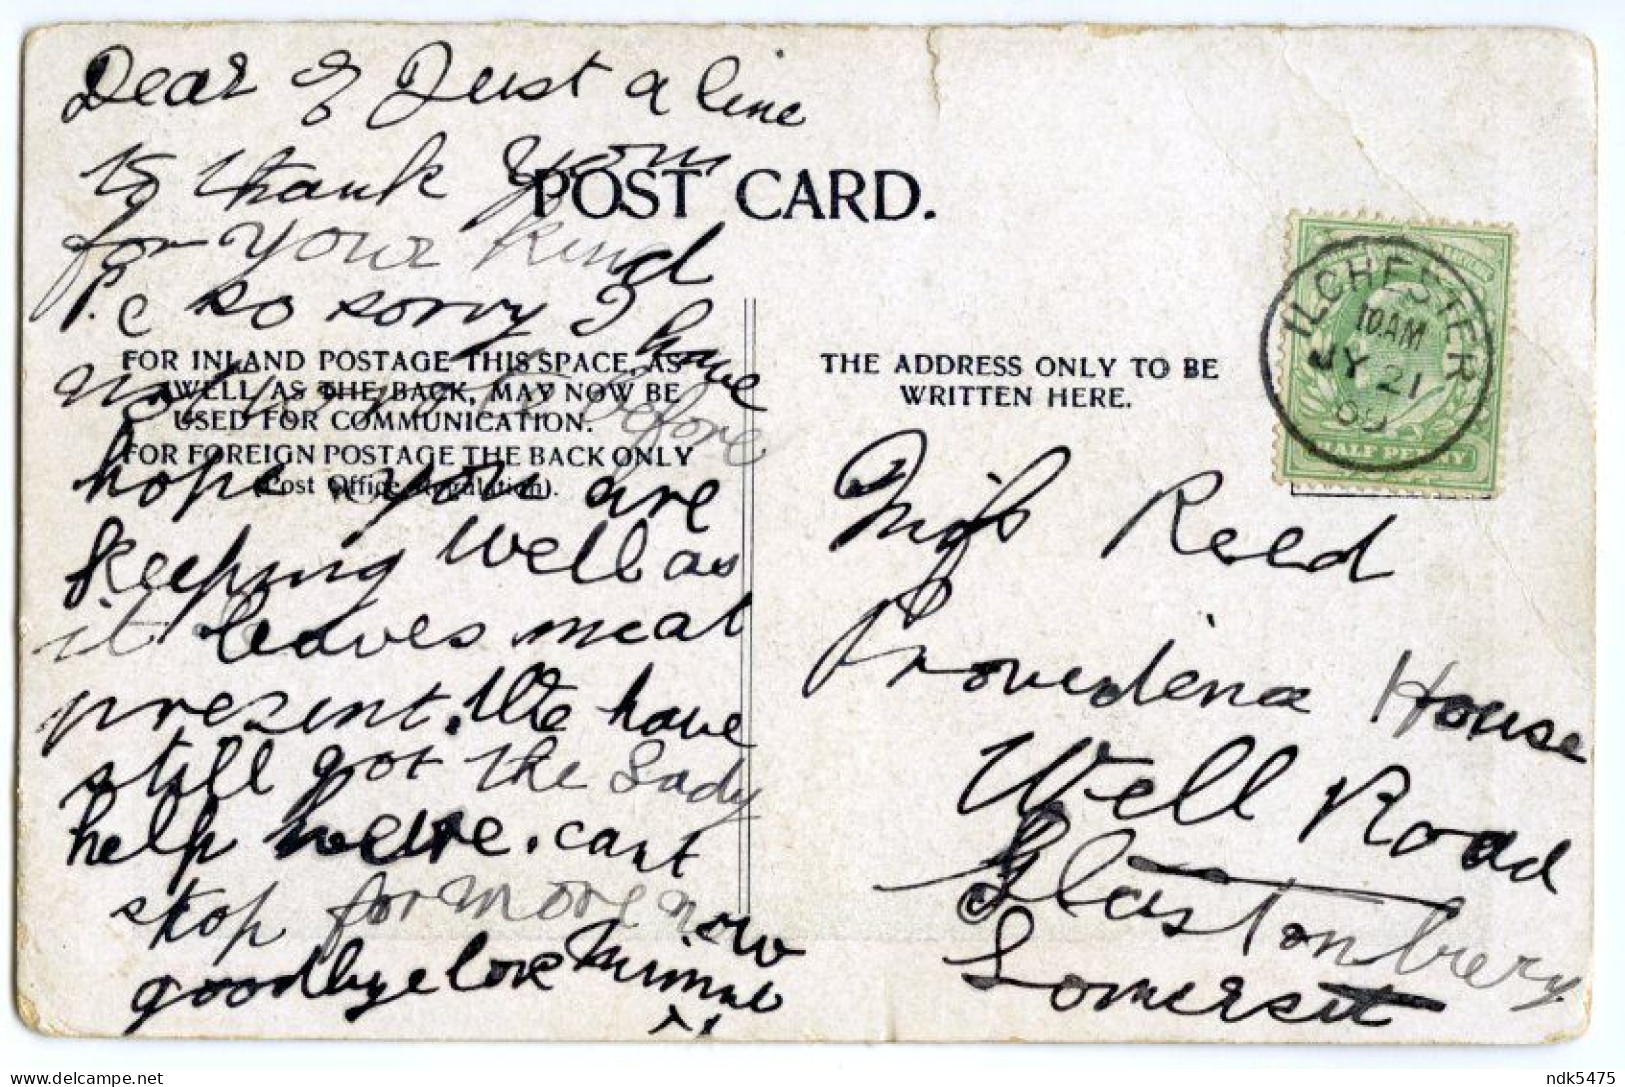 Dear E Just a line
to thank you
for your kind
P.c so sorry I have
not wrote before
hope you are
keeping well as
it leaves me at
present. We have
still got the Lady
help here. cant
stop for more now
goodbye love Minnie
POST CARD.
FOR INLAND POSTAGE THIS SPACE, AS
WELL AS THE BACK, MAY NOW BE
USED FOR COMMUNICATION.
FOR FOREIGN POSTAGE THE BACK ONLY
(Post Office Regulation).
THE ADDRESS ONLY TO BE
WRITTEN HERE.
ILCHESTER
10 AM
JY 21
09
HALF PENNY
Miss Reed
Providence House
Well Road
Glastonbury
Somerset
ndk5475